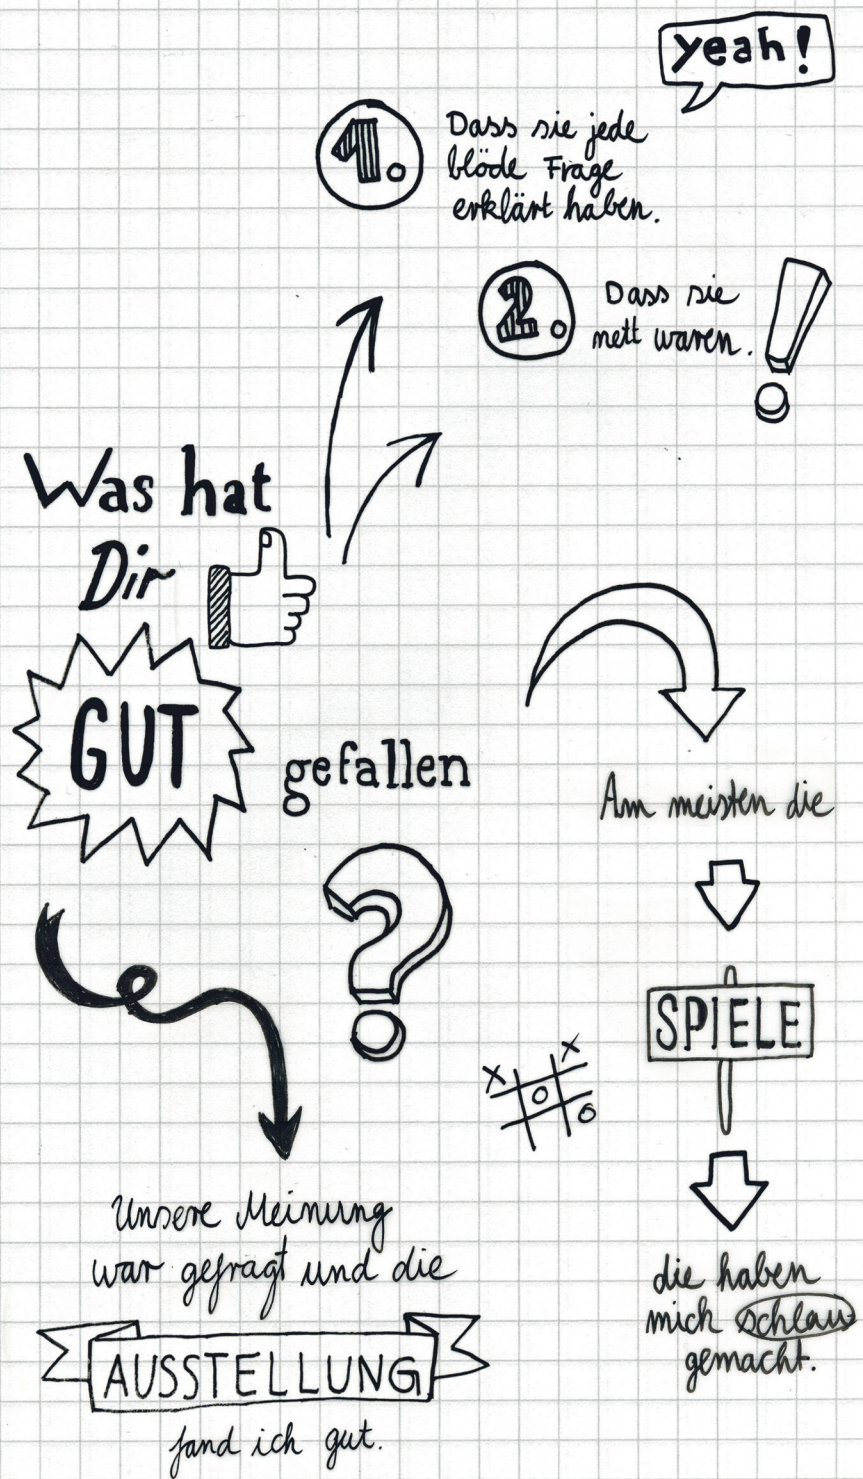 yeah!
1.
Dass sie jede
blöde Frage
erklärt haben.
2.
Dass sie
nett waren.
Was hat
Dir
GUT
gefallen
?
Am meisten die
SPIELE
die haben
mich schlau
gemacht.
Unsere Meinung
war gefragt und die
AUSSTELLUNG
fand ich gut.